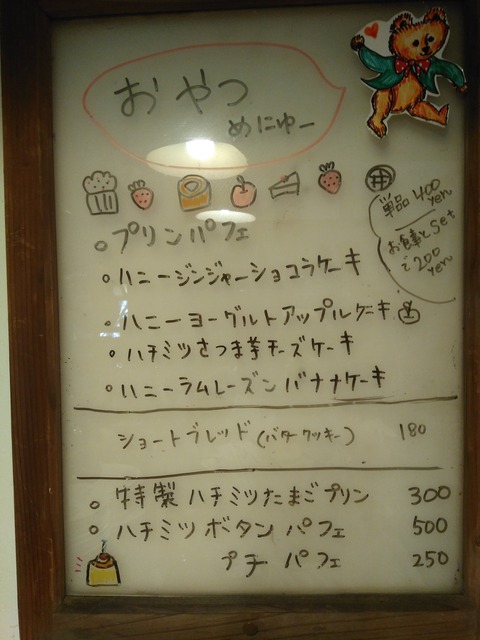 おやつ
めにゅー
単品400
yen
お食事とSet
で200
yen
プリンパフェ
ハニージンジャーショコラケーキ
ハニーヨーグルトアップルケーキ
ハチミツさつま芋チーズケーキ
ハニーラムレーズンバナナケーキ
ショートブレッド(バタークッキー) 180
特製ハチミツたまごプリン 300
ハチミツボタンパフェ 500
プチパフェ 250